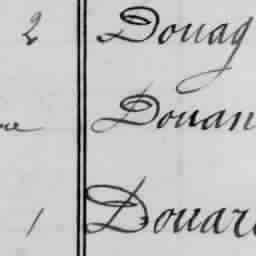 2 Douag
Douan
1 Douar